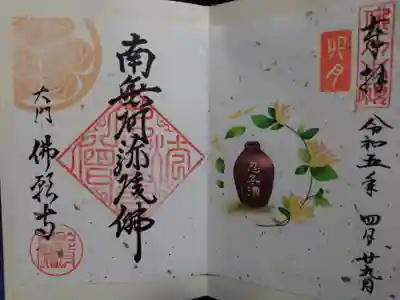 奉拝
卯月
令和五年 四月 廿九日
忍冬酒
南無阿弥陀佛
大門 佛願寺